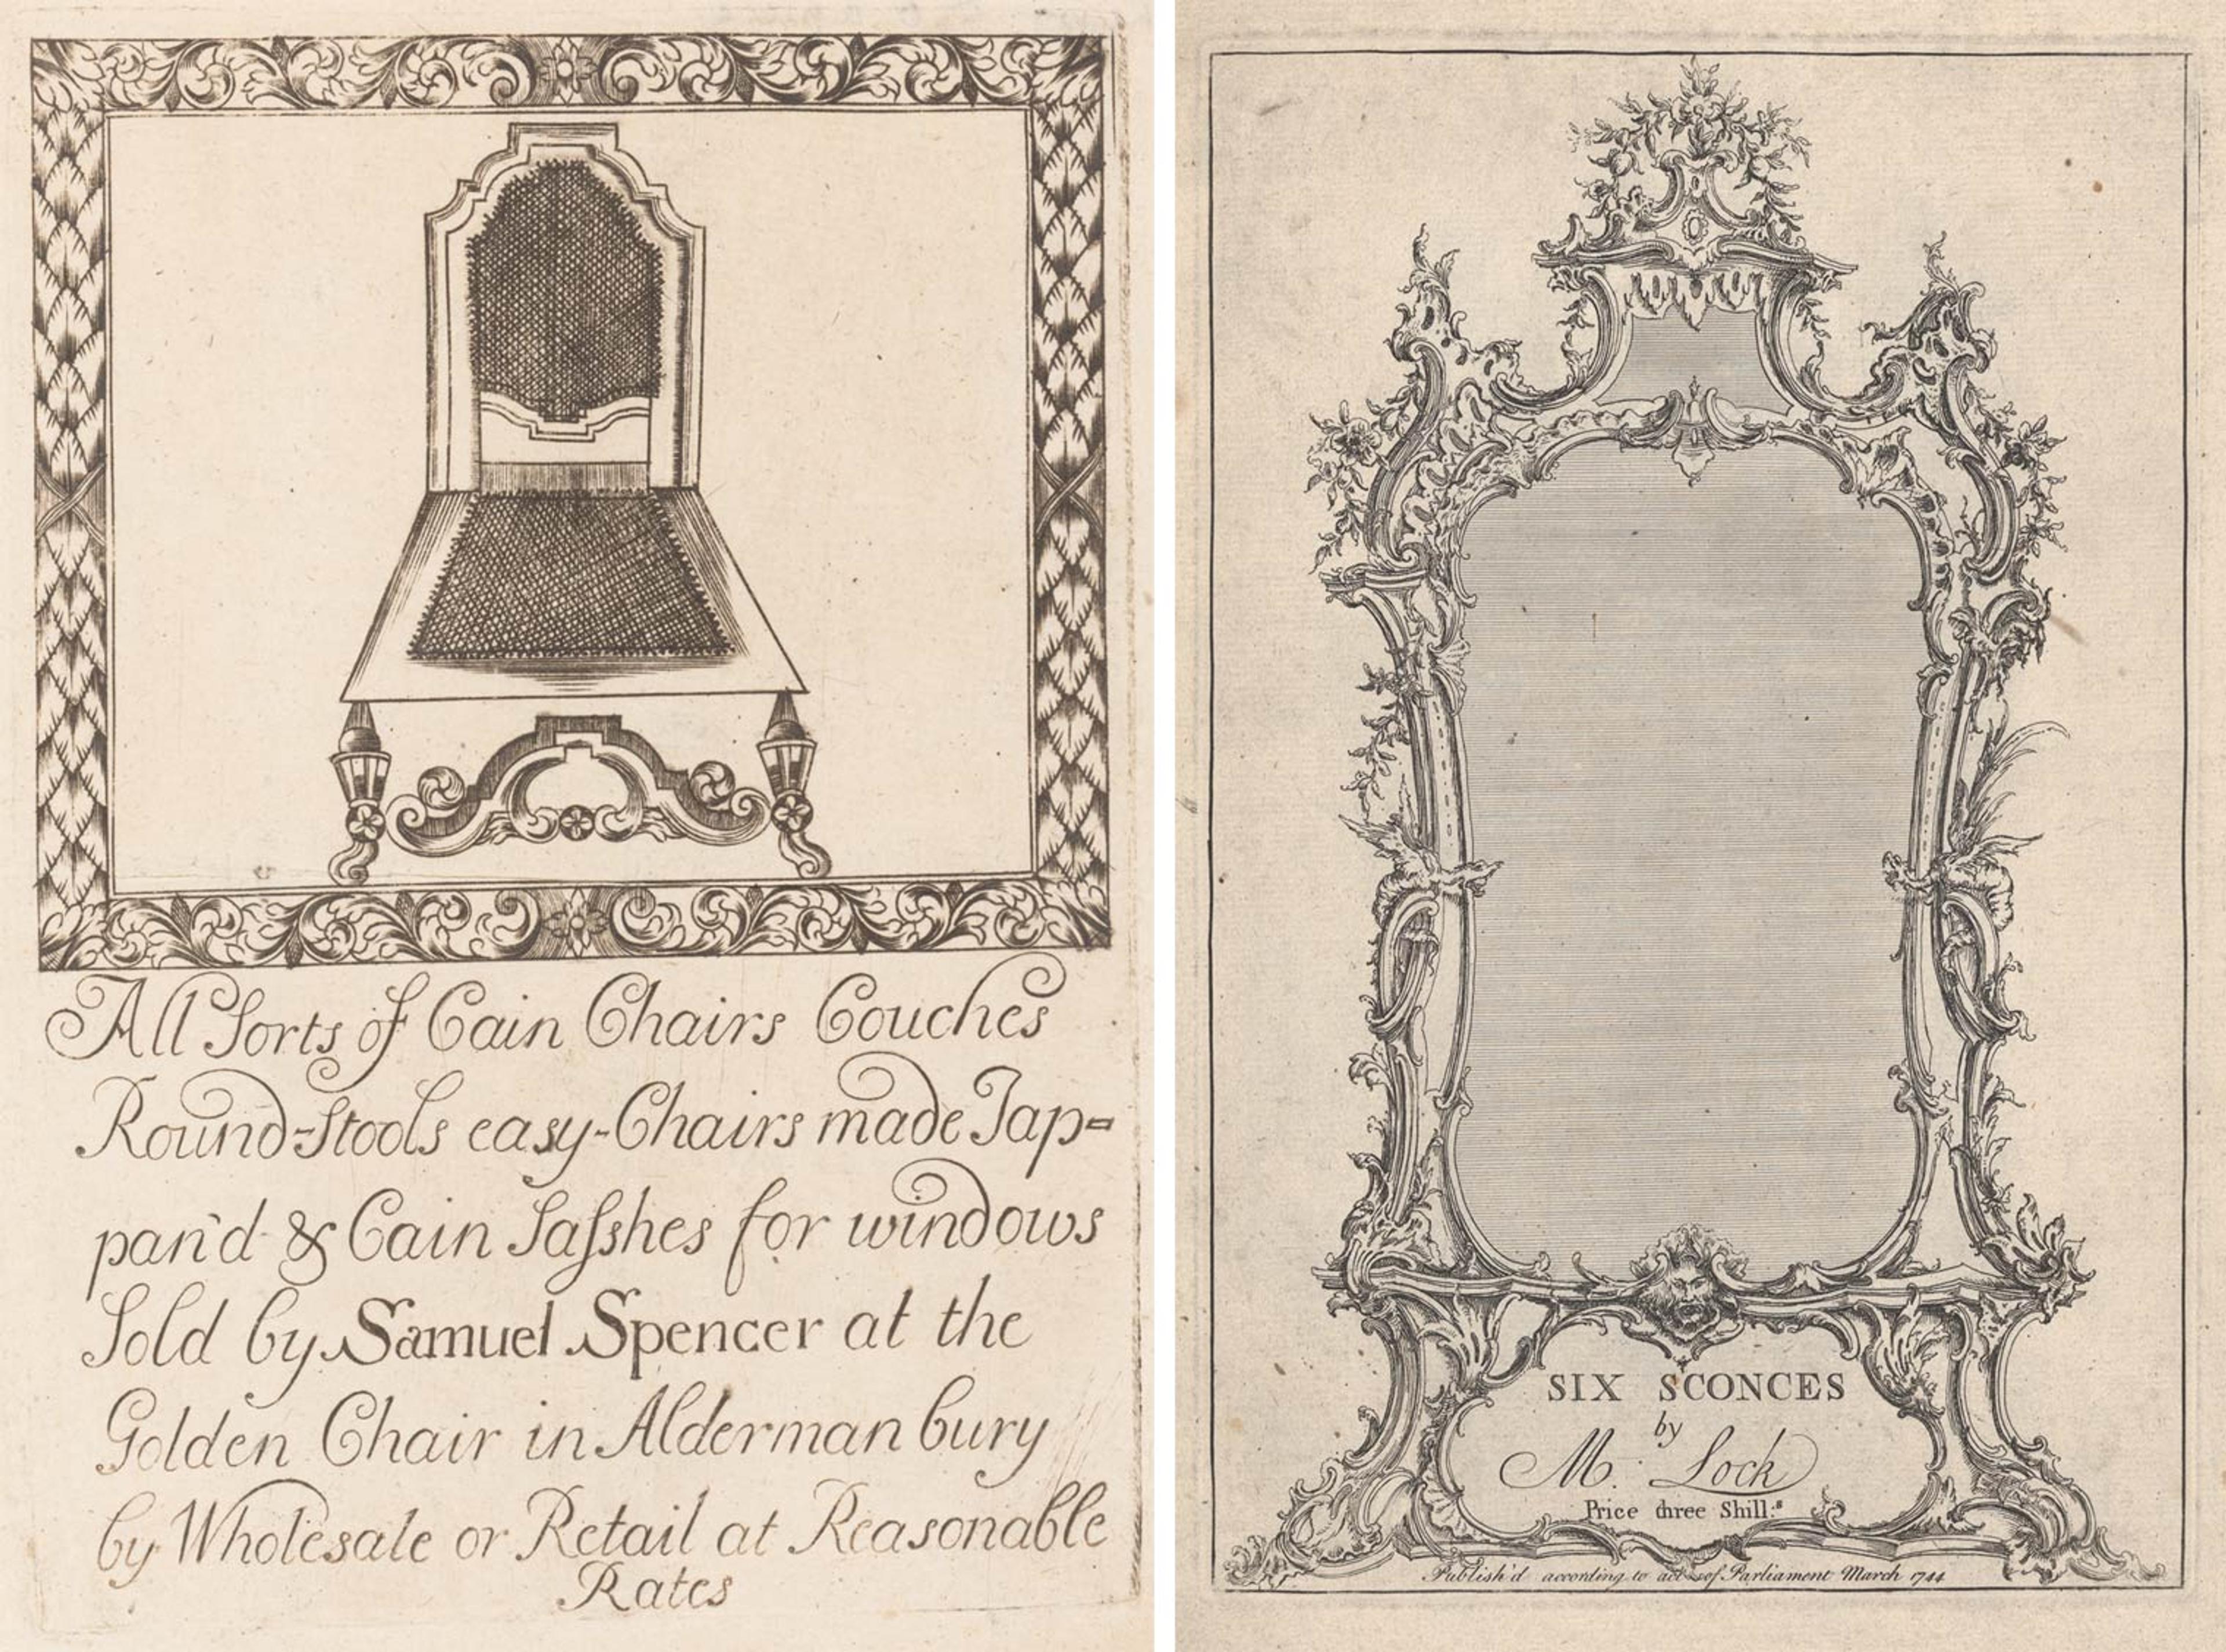 All Sorts of Cain Chairs Couches
Round-Stools easy-Chairs made Jap=
pan'd & Cain Saſshes for windows
Sold by Samuel Spencer at the
Golden Chair in Alderman bury
by Wholesale or Retail at Reasonable
Rates
SIX SCONCES
by
M. Lock
Price three Shill:s
Publish'd according to act of Parliament March 1744